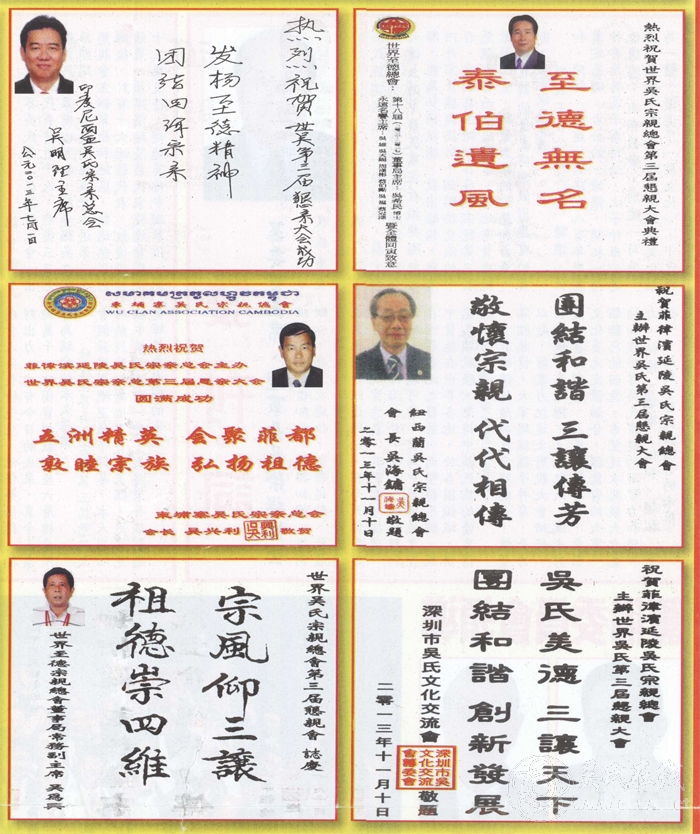 热烈祝贺世吴第三届恳亲大会成功
发杨至德精神
团结四海宗亲
印度尼西亚吴氏宗亲总会
吴明理主席
公元二〇一三年十一月一日
熱烈祝賀世界吳氏宗親總會第三屆懇親大會典禮
至德無名
泰伯遺風
世界至德總會:
第十八屆
董事局主席:吳希民 博士
永遠名譽主席:
暨全體同寅致意
柬埔寨吳氏宗親協會
WU CLAN ASSOCIATION CAMBODIA
热烈祝贺
菲律滨延陵吴氏宗亲总会主办
世界吴氏宗亲总会第三届恳亲大会
圆满成功
五洲精英 会聚菲都
敦睦宗族 弘扬祖德
柬埔寨吴氏宗亲总会
会长 吴兴利 敬贺
祝賀菲律濱延陵吳氏宗親總會
主辦世界吳氏第三屆懇親大會
團結和諧 三讓傳芳
敬懷宗親 代代相傳
紐西蘭吳氏宗親總會
會長 吳海鏞 敬題
二零一三年十一月十日
世界吳氏宗親總會第三屆懇親會 誌慶
宗風仰三讓
祖德崇四維
世界至德宗親總會董事局常務副主席 吳為興
祝賀菲律濱延陵吳氏宗親總會
主辦世界吳氏第三屆懇親大會
吳氏美德 三讓天下
團結和諧 創新發展
深圳市吳氏文化交流會 敬題
深圳市吳
文化交流
會籌委會
二零一三年十一月十日